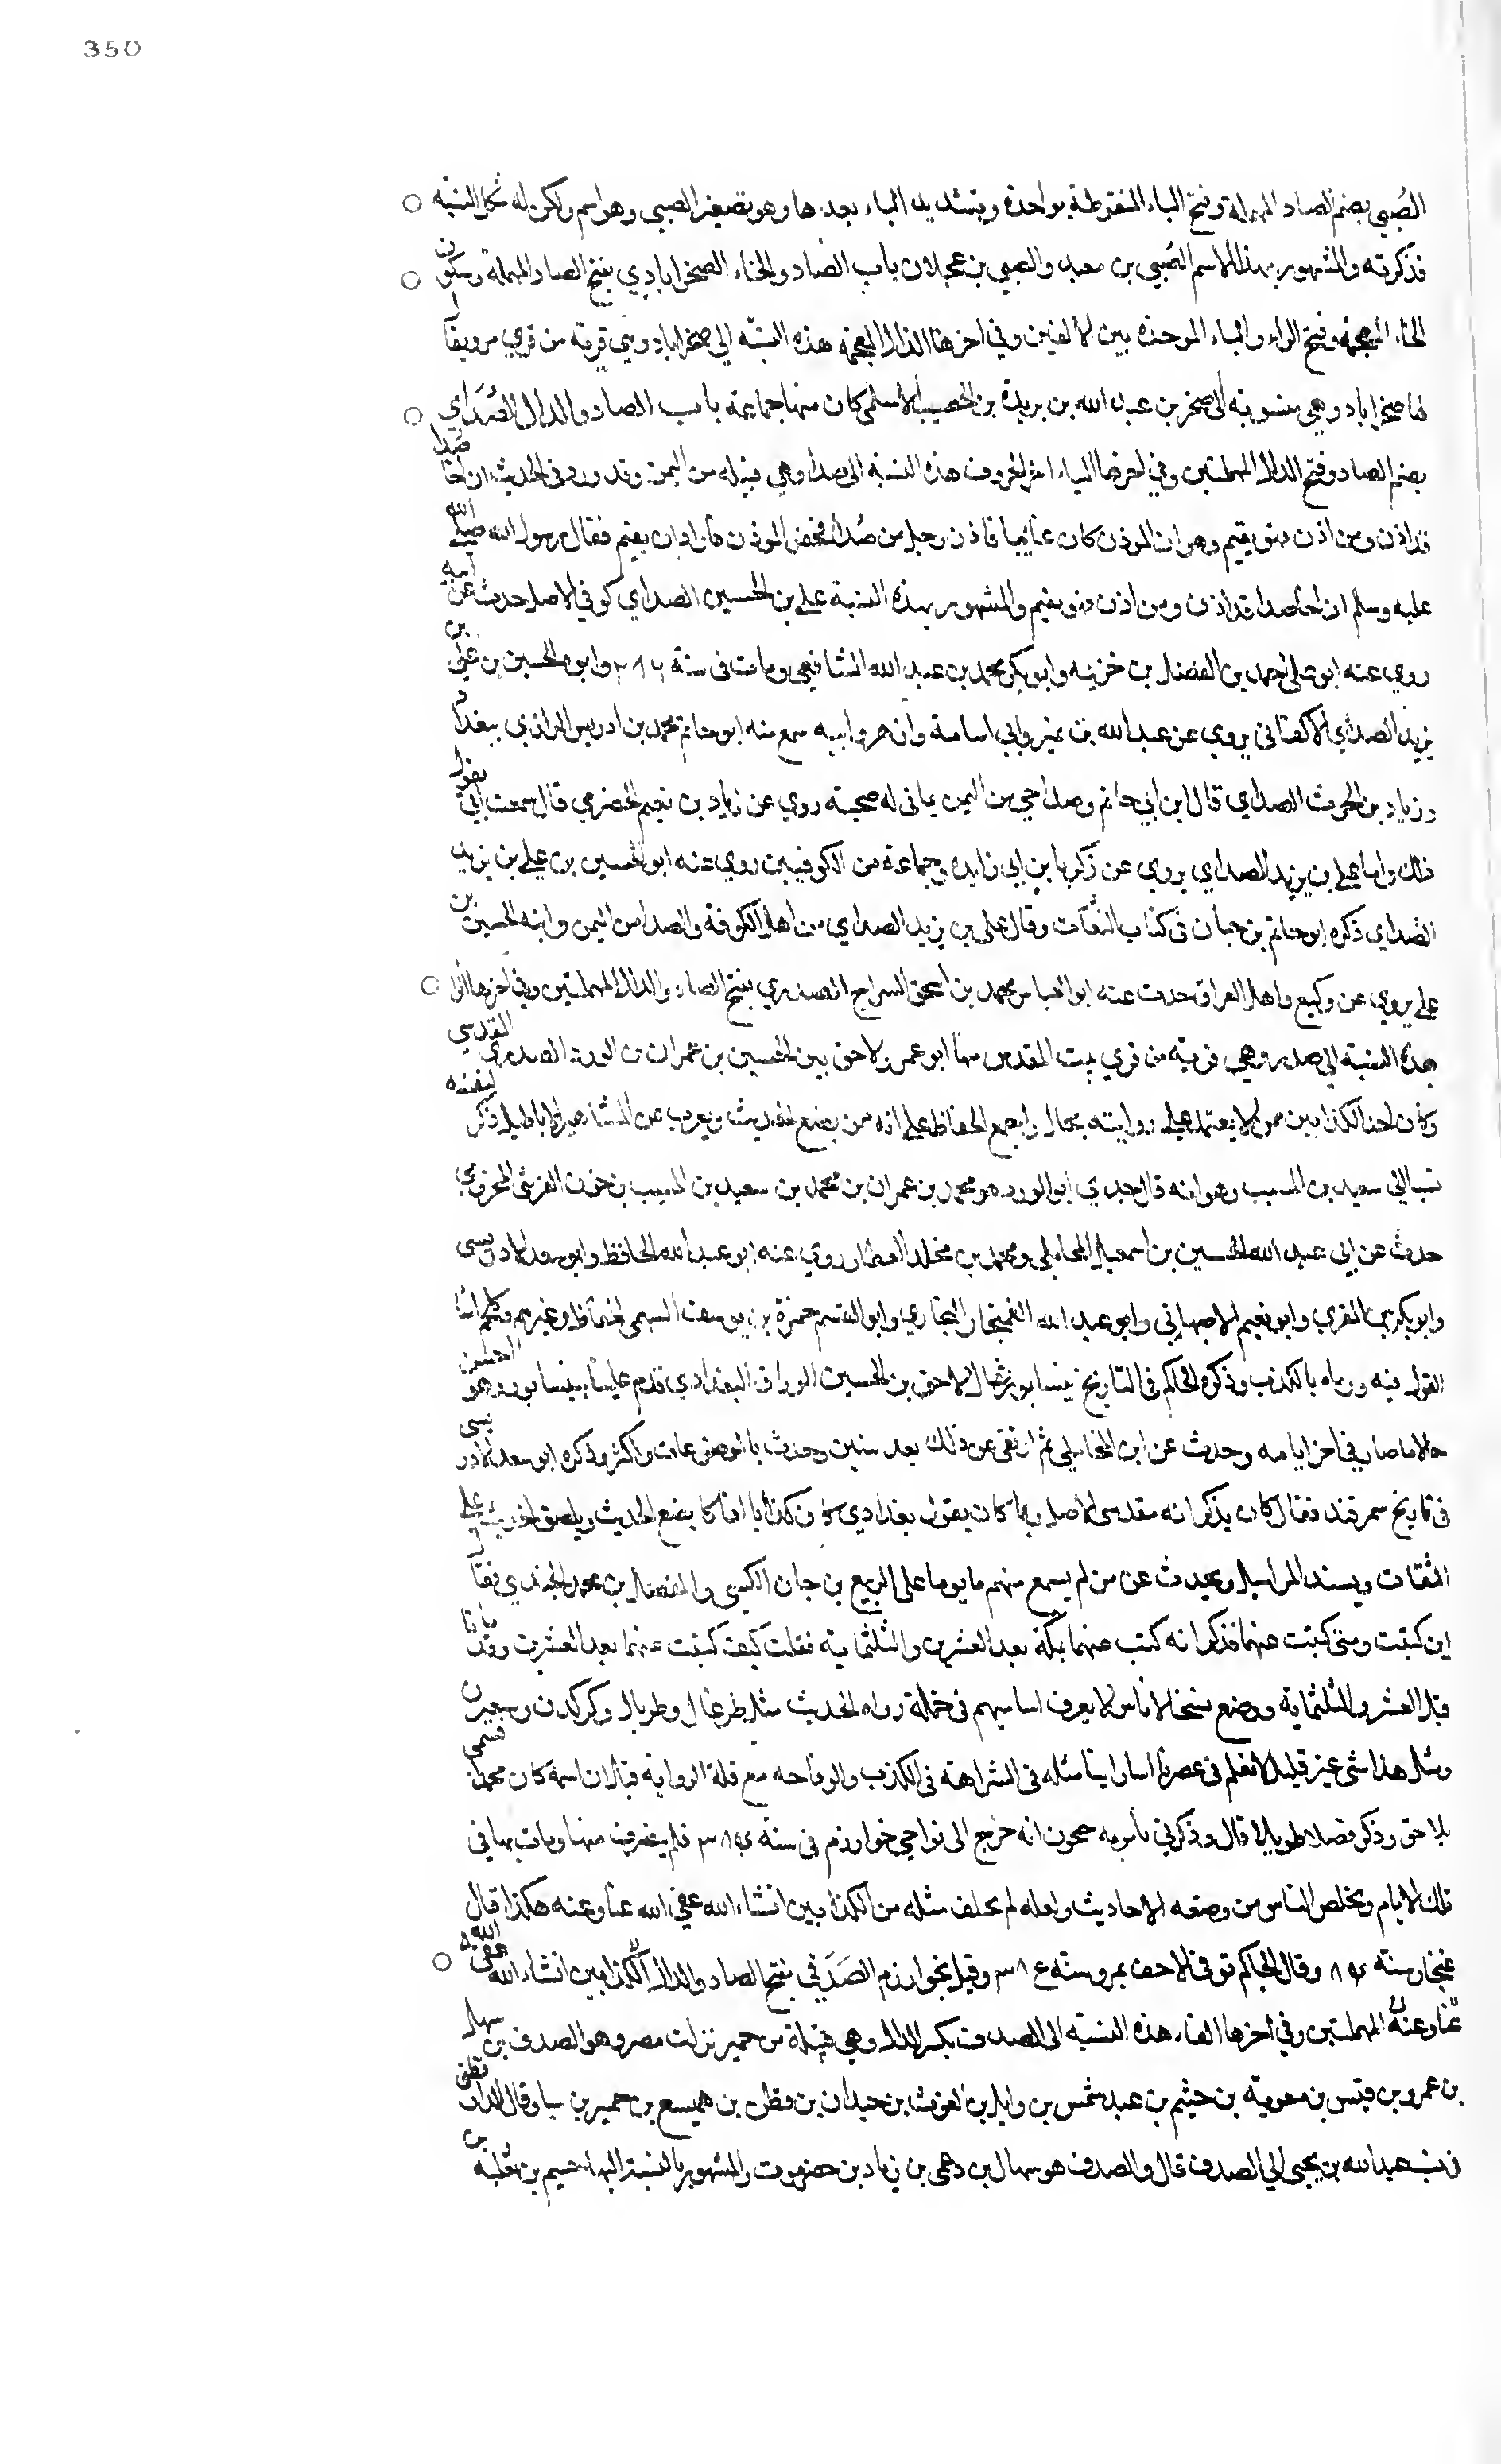 350
الصُبي بضم الصاد المهملة وفتح الباء المنقوطة بواحدة وبتشديد الياء بعدها وهو تصغير الصبي وهو اسم ولكن له شكل النسبة
فذكرته والمشهور بهذا الاسم الصُبي بن معبد والصبي بن عجلان باب الصاد والخاء الصخراباذي بفتح الصاد المهملة وسكون
الخاء المعجمة وفتح الراء والباء الموحدة بين الالفين وفي اخرها الذال المعجمة هذه النسبة الى صخراباد وهي قرية من قرى مرو يقال
لها صخراباد وهي منسوبة الى صخر بن عبد الله بن بريدة بن الحصيب الاسلمي كان منها جماعة باب الصاد والدال الصُدَاي
بضم الصاد وفتح الدال المهملتين وفي اخرها الياء اخر الحروف هذه النسبة الى صدا وهي قبيلة من اليمن وقد ورد في الحديث ان اخا صدا
قد اذن ومن اذن فهو يقيم وهو ان الموذن كان غايبا فاذن رجل من صُدا فحضر الموذن فاراد ان يقيم فقال رسول الله صلى الله
عليه وسلم ان اخا صدا قد اذن ومن اذن فهو يقيم والمشهور بهذه النسبة علي بن الحسين الصداي كوفي الاصل حدث عن ابيه
روي عنه ابو علي احمد بن الفضل بن خزيمة وابو بكر محمد بن عبد الله الشافعي ومات في سنة ٢٨٦ وابو الحسين بن علي بن
يزيد الصداي الاكفاني يروي عن عبد الله بن نمير وابي اسامة وازهر وابيه سمع منه ابو حاتم محمد بن ادريس الرازي ببغداد
وزياد بن الحرث الصداي قال ابن ابي حاتم وصدا حي من اليمن يماني له صحبة روي عن زياد بن نعيم الحضرمي قال سمعت ابي يقول
ذلك واما علي بن يزيد الصداي يروي عن زكريا بن ابي زايدة وجماعة من الكوفيين روي عنه ابو الحسين بن علي بن يزيد
الصداي ذكره ابو حاتم بن حبان في كتاب الثقات وقال علي بن يزيد الصداي من اهل الكوفة والصدا من اليمن وابنه الحسين بن
علي يروي عن وكيع واهل العراق حدث عنه ابو العباس محمد بن اسحق السراج الصدري بفتح الصاد والدال المهملتين وفي اخرها الرا
هذه النسبة الى صدر وهي قرية من قرى بيت المقدس منها ابو عمر لاحق بين الحسين بن عمران بن الورد الصدري المقدسي
وكان احد الكذابين ممن لا يعتمد على روايته بحال واجمع الحفاظ على انه ممن يضع الحديث ويعرب عن المشاهير اباطيل ذكر لنفسه
نسبا الى سعيد بن المسيب وهو انه قال جدي ابو الورد هو محمد بن عمران بن محمد بن سعيد بن المسيب بن حزن القرشي المخزومي
حدث عن ابي عبد الله الحسين بن اسمعيل المحاملي ومحمد بن مخلد العطار روي عنه ابو عبد الله الحافظ وابو سعد الادريسي
وابو بكر بن المقري وابو نعيم الاصبهاني وابو عبد الله الغنجار البخاري وابو القسم حمزة بن يوسف السهمي الحفاظ وغيرهم وكلهم اسا
القول فيه ورماه بالكذب وذكره الحاكم في التاريخ نيسابور فقال لاحق بن الحسين الوراق البغدادي قدم علينا بنيسابور وهو احسن
حالا ما صار في اخر ايامه وحدث عن ابن المحاملي ثم ارتقى عن ذلك بعد سنين وحدث بالموضوعات واكثر وذكره ابو سعد الادريسي
في تاريخ سمرقند فقال كان يذكر انه مقدسي الاصل وربما كان يقول بغدادي كان كذابا افاكا يضع الحديث ويلصق الحديث على
الثقات ويسند المراسيل ويحدث عن من لم يسمع منهم ما يوما على الربيع بن حبان الكسي والمفضل بن محمد الجندي فقال
اين كتبت ومتى كتبت عنهما فذكر انه كتب عنهما بمكة بعد العشرين والثلثماية فقلت كيف كتبت عنهما بعد العشرين وقد ماتا
قبل العشر والثلثماية ووضع نسخا لاناس لا يعرف اساميهم في جملة رواه الحديث مثل طرغال وطربال وكركدن وسجير
ومثل هذا شي غير قليل لا نعلم في عصرنا انسانا راينا مثله في الشراهة في الكذب والوقاحة مع قلة الرواية قيل ان اسمه كان محمدا فسمي
بلاحق وذكر فصلا طويلا قال وذكر لي انه خرج الى نواحي خوارزم في سنة ٣٨٤ فلم ينصرف منها ومات بها في
تلك الايام وتخلص الناس من وضعه الاحاديث ولعله لم يخلف مثله من الكذابين انشاء الله عفى الله عنا وعنه هكذا قال
غنجار سنة وقال الحاكم توفي لاحق بمرو سنة ٣٨٤ وقيل بخوارزم الصَدَفي بفتح الصاد والدال الكذابين انشاء الله عفى الله
عنا وعنه المهملتين وفي اخرها الفاء هذه النسبة الى الصدف بكسر الدال وهي قبيلة من حمير نزلت مصر وهو الصدف بن سهل
بن عمرو بن قيس بن معوية بن جشم بن عبد شمس بن وايل بن الغوث بن حيدان بن قطن بن هميسع بن حمير بن سبا وقال الدارقطني
في نسب عبد الله بن يحيى الى الصدف قال والصدف هو سهال بن دعمي بن زياد بن حضرموت والمشهور بالنسبة اليها جسيم بن ثعلبة بن